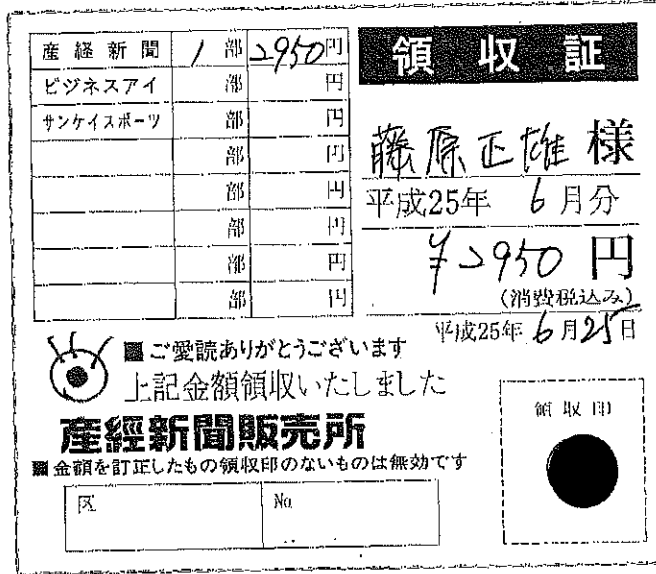 産経新聞 1部 2950円
ビジネスアイ 部 円
サンケイスポーツ 部 円
部 円
部 円
部 円
部 円
部 円
領収証
藤原正雄様
平成25年 6月分
¥2950円
(消費税込み)
平成25年6月25日
■ご愛読ありがとうございます
上記金額領収いたしました
産經新聞販売所
■金額を訂正したもの領収印のないものは無効です
区 No.
領収印